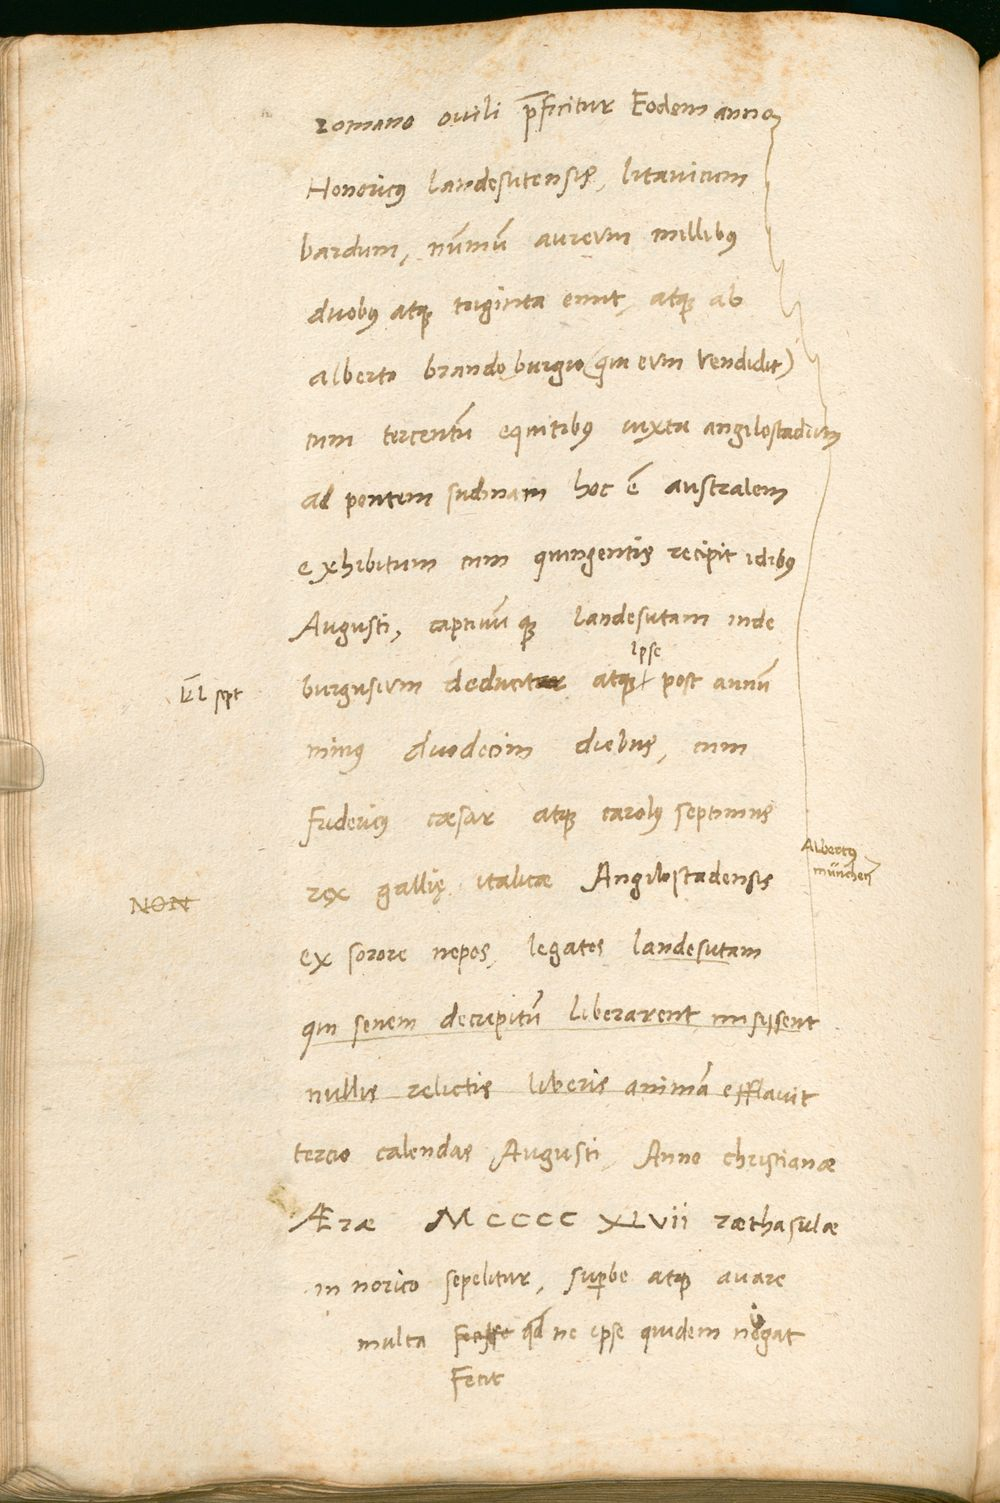 romano ovili p̄ficitur Eodem anno
Honoricus landesutensis, litavicum
bardum, nūmū aurevm millibus
duobus atque triginta emit, atque ab
alberto brandoburgio (qui evm vendidit)
cum tercentū equitibus iuxta angilostadium
ad pontem sudinam hoc ē australem
exhibitum cum quingentis recipit idibus
Augusti, captivūque landesutam inde
ipse
burgusium deducit atque post annū
minus duodecim diebus, cum
fridericus cæsar atque carolus septimus
rex gallię italicæ Angilostadensis
ex sorore nepos, legatos landesutam
qui senem decrepitū liberarent misissent
nullis relictis liberis animā efflavit
tercio calendas Augusti, Anno christianæ
Æræ MCCCC XLvii ræthasulæ
in norico sepelitur, superbe atque avare
multa fecisse qd ne ipse quidem negat
Fecit
sept
NON
Albertus
münchen